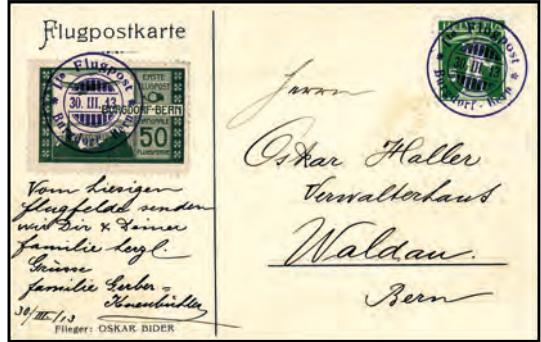 Flugpostkarte
Ite Flugpost
30. III. 13
Burgdorf - Bern
ERSTE
FLUGPOST
BURGDORF-BERN
NATIONALE
50
FLUGSPENDE
Vom hiesigen
flugfelde senden
wir Dir & Deiner
familie herzl.
Grüsse
familie Gerber =
30/III/13
Flieger: OSKAR BIDER
Ite Flugpost
30. III. 13
Burgdorf - Bern
Herrn
Oskar Haller
Verwalterhaus
Waldau.
Bern